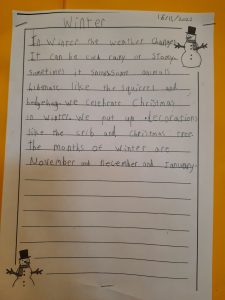 Winter
In Winter the weather changes
It can be cold rainy or Stormy
sometimes it snows some animals
hibernate like the squirrel and
hedgehog. we celebrate Christmas
in Winter. We put up decorations
like the crib and christmas tree
the months of winter are
November and December and January